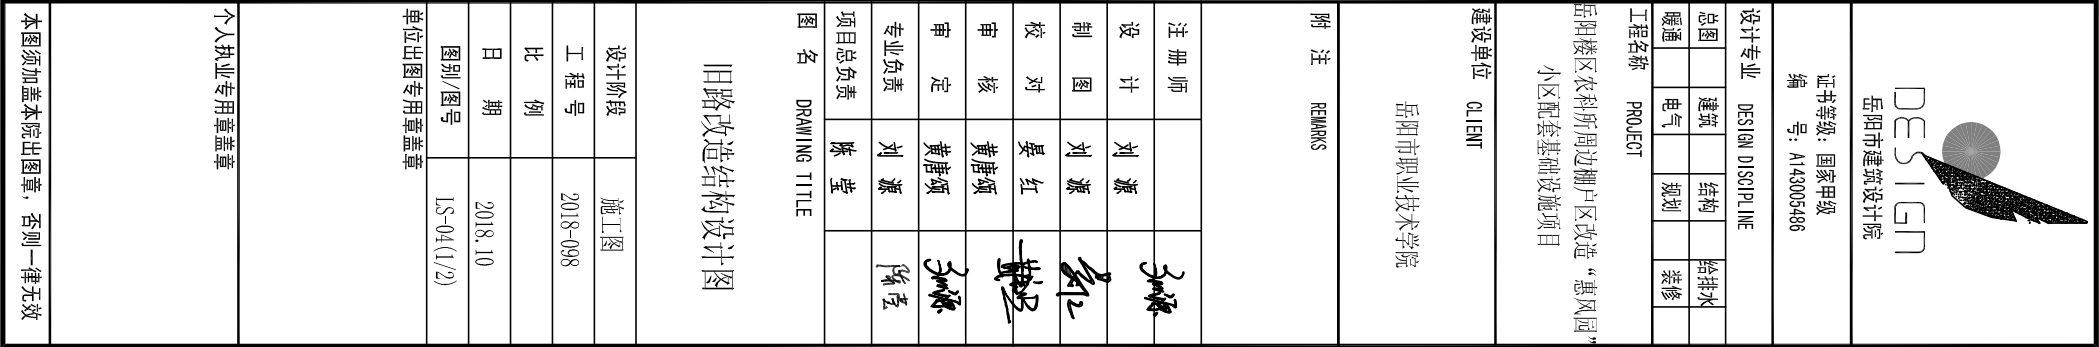 DESIGN
岳阳市建筑设计院
证书等级: 国家甲级
编 号: A143005486
设计专业 DESIGN DISCIPLINE
总图 建筑 结构 给排水
暖通 电气 规划 装修
工程名称 PROJECT
岳阳楼区农科所周边棚户区改造“惠风园”
小区配套基础设施项目
建设单位 CLIENT
岳阳市职业技术学院
附 注 REMARKS
注 册 师
设 计 刘 源
制 图 刘 源
校 对 晏 红
审 核 黄唐颂
审 定 黄唐颂
专业负责 刘 源 陈莹
项目总负责 陈 莹
图 名 DRAWING TITLE
旧路改造结构设计图
设计阶段 施工图
工 程 号 2018-098
比 例
日 期 2018.10
图别/图号 LS-04(1/2)
单位出图专用章盖章
个人执业专用章盖章
本图须加盖本院出图章, 否则一律无效